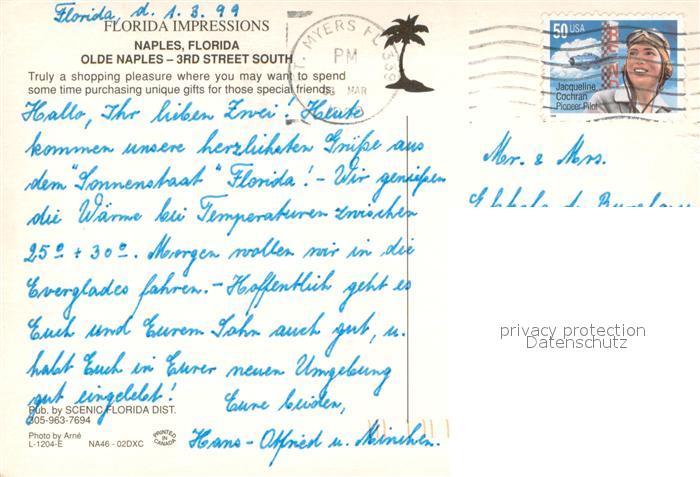 Florida, d. 1.3.99
FLORIDA IMPRESSIONS
NAPLES, FLORIDA
OLDE NAPLES – 3RD STREET SOUTH
Truly a shopping pleasure where you may want to spend
some time purchasing unique gifts for those special friends.
FT. MYERS FL 339
PM
MAR
50 USA
Jacqueline
Cochran
Pioneer Pilot
Hallo, Ihr lieben Zwei! Heute
kommen unsere herzlichsten Grüße aus
dem "Sonnenstaat" Florida! – Wir genießen
die Wärme bei Temperaturen zwischen
25° + 30°. Morgen wollen wir in die
Everglades fahren. – Hoffentlich geht es
Euch und Eurem Sohn auch gut, u.
habt Euch in Eurer neuen Umgebung
gut eingelebt!
Eure beiden,
Hans-Otfried u. Minchen.
Mr. & Mrs.
Pub. by SCENIC FLORIDA DIST.
305-963-7694
Photo by Arné
L-1204-E
NA46 - 02DXC
PRINTED IN CANADA
privacy protection
Datenschutz